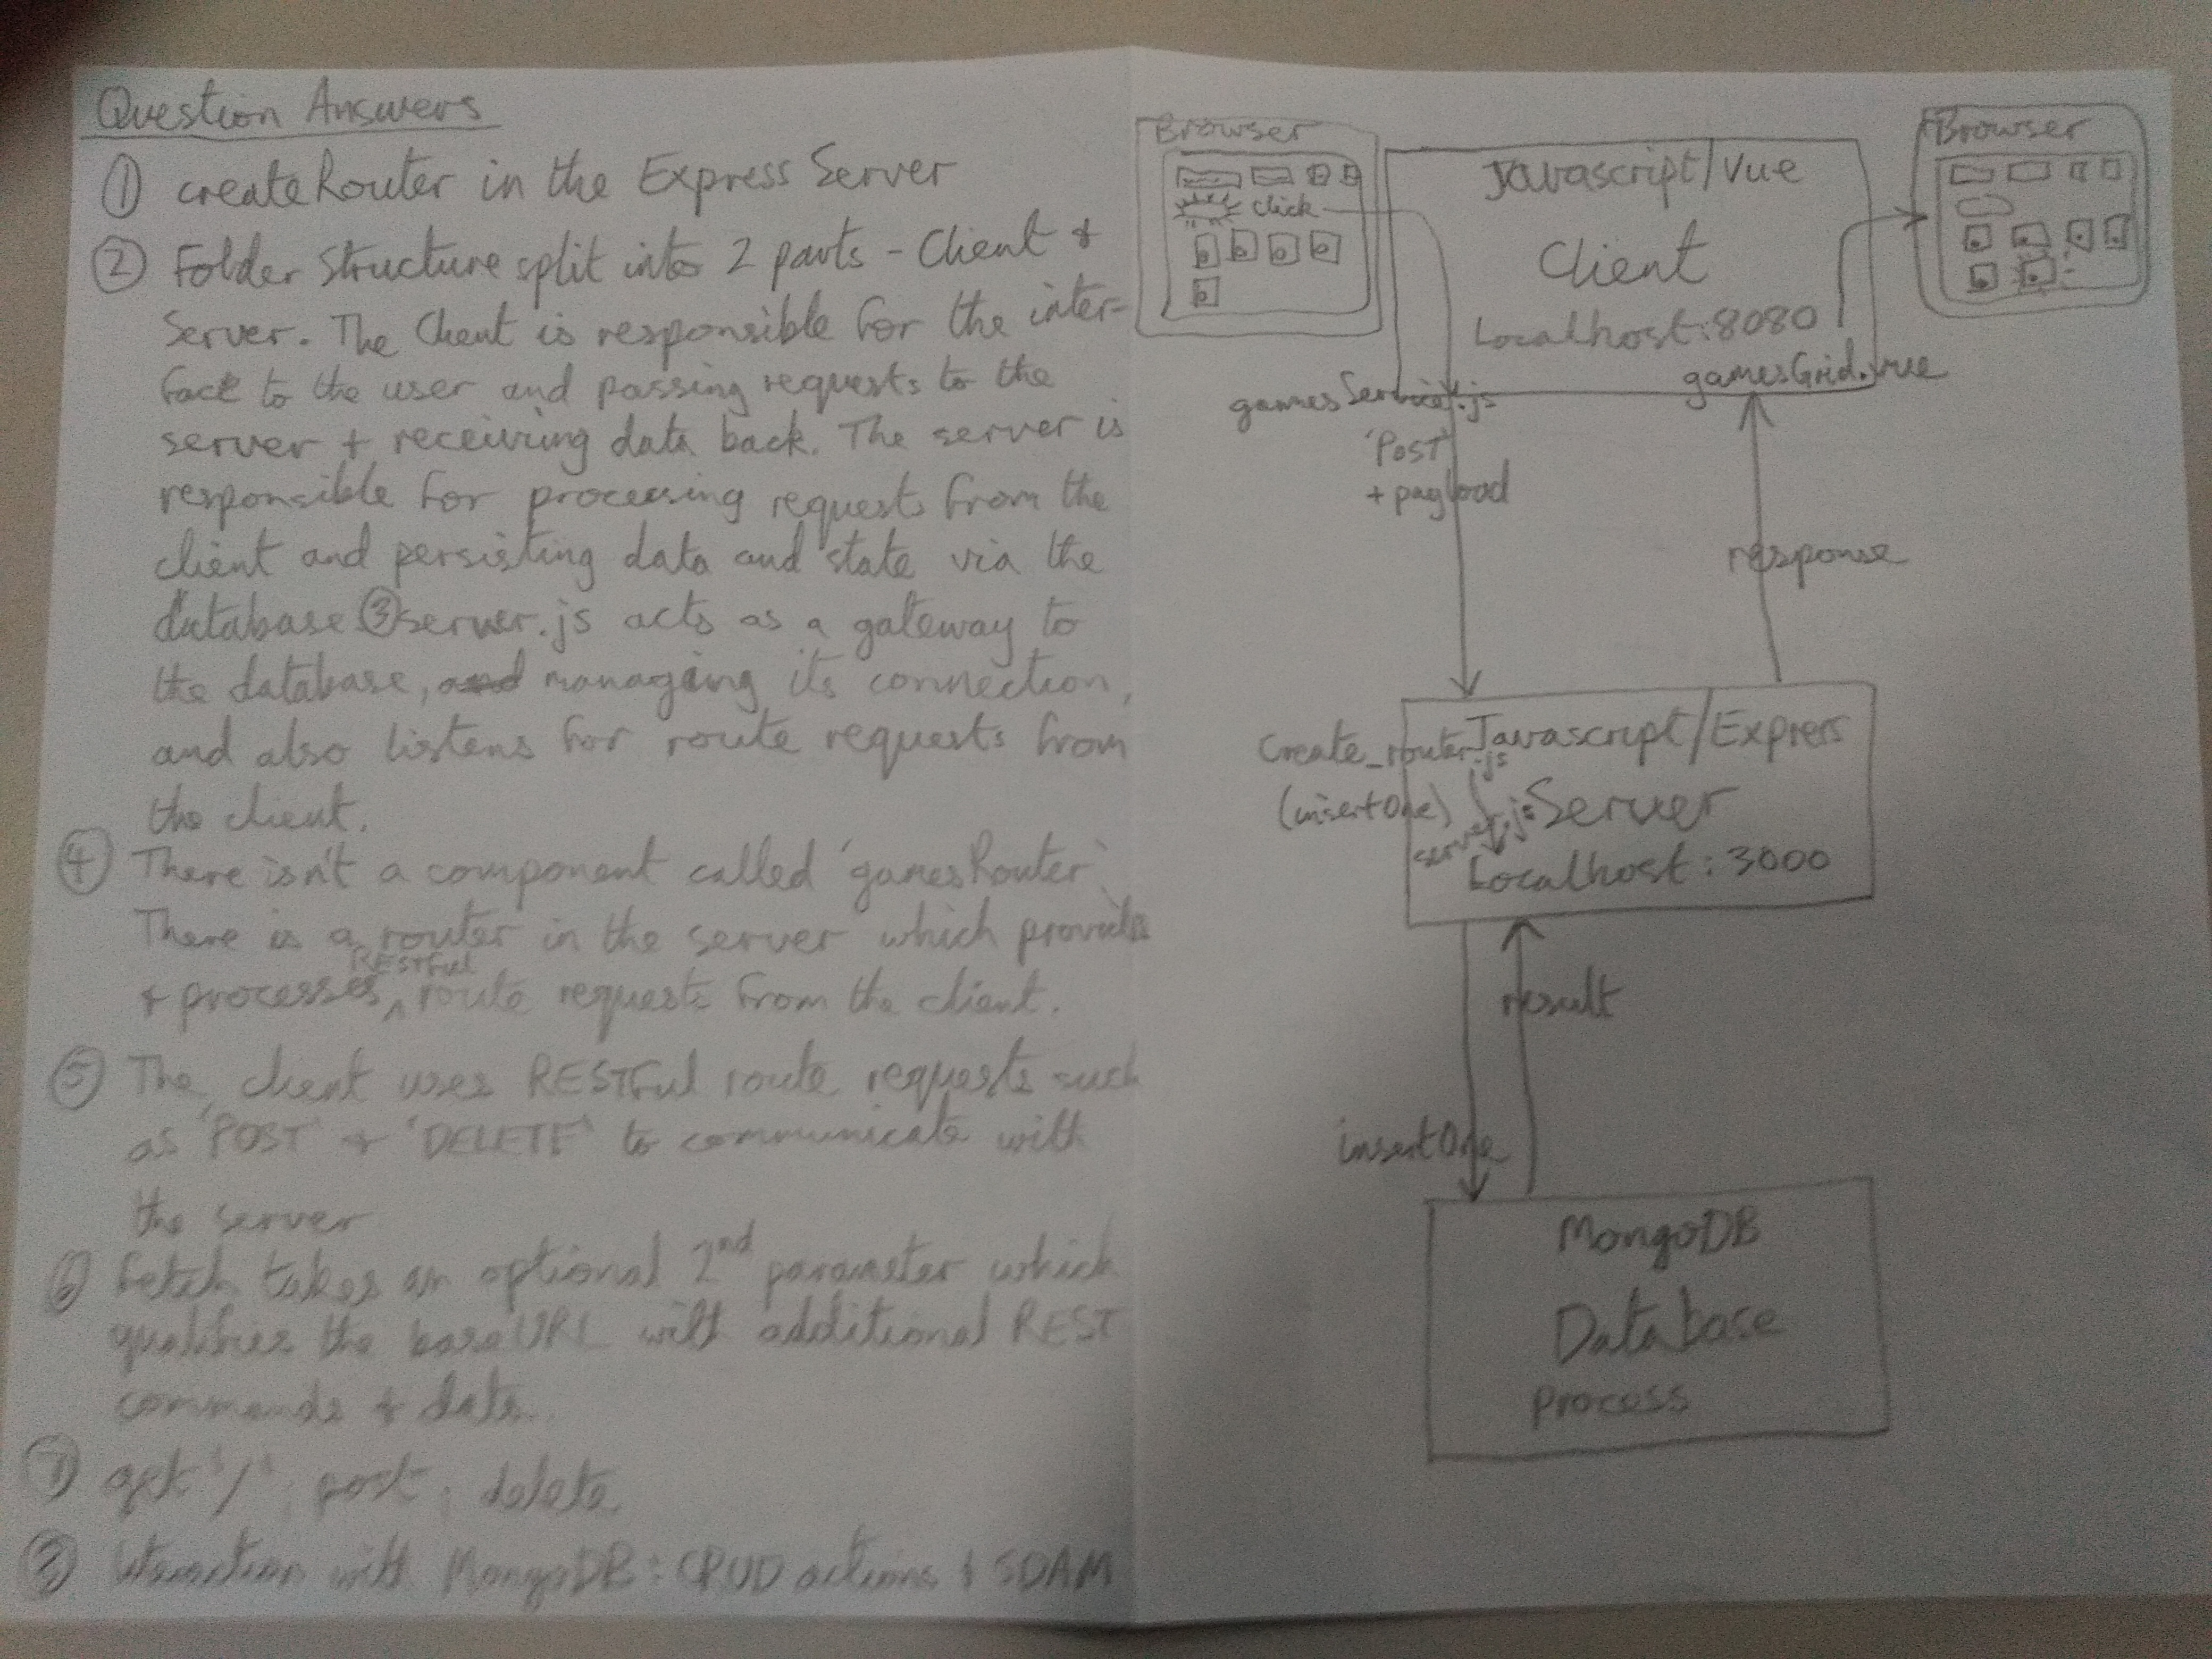 Question Answers
① createRouter in the Express Server
② Folder structure split into 2 parts - Client &
Server. The Client is responsible for the inter-
face to the user and passing requests to the
server + receiving data back. The server is
responsible for processing requests from the
client and persisting data and state via the
database ③ server.js acts as a gateway to
the database, and managing its connection,
and also listens for route requests from
the client.
④ There isn't a component called 'gamesRouter'.
There is a router in the server which provides
RESTful
& processes ^ route requests from the client.
⑤ The client uses RESTful route requests such
as 'POST' + 'DELETE' to communicate with
the server
⑥ fetch takes an optional 2nd parameter which
qualifies the baseURL with additional REST
commands & data.
⑦ get '/', post, delete
⑧ Interaction with MongoDB: CRUD actions & SDAM
Browser
click
Javascript/Vue
Client
Localhost:8080
Browser
gamesService.js
gamesGrid.vue
'POST'
+ payload
response
create_router.js
(insertOne)
server.js
Javascript/Express
Server
Localhost: 3000
result
insertOne
MongoDB
Database
process